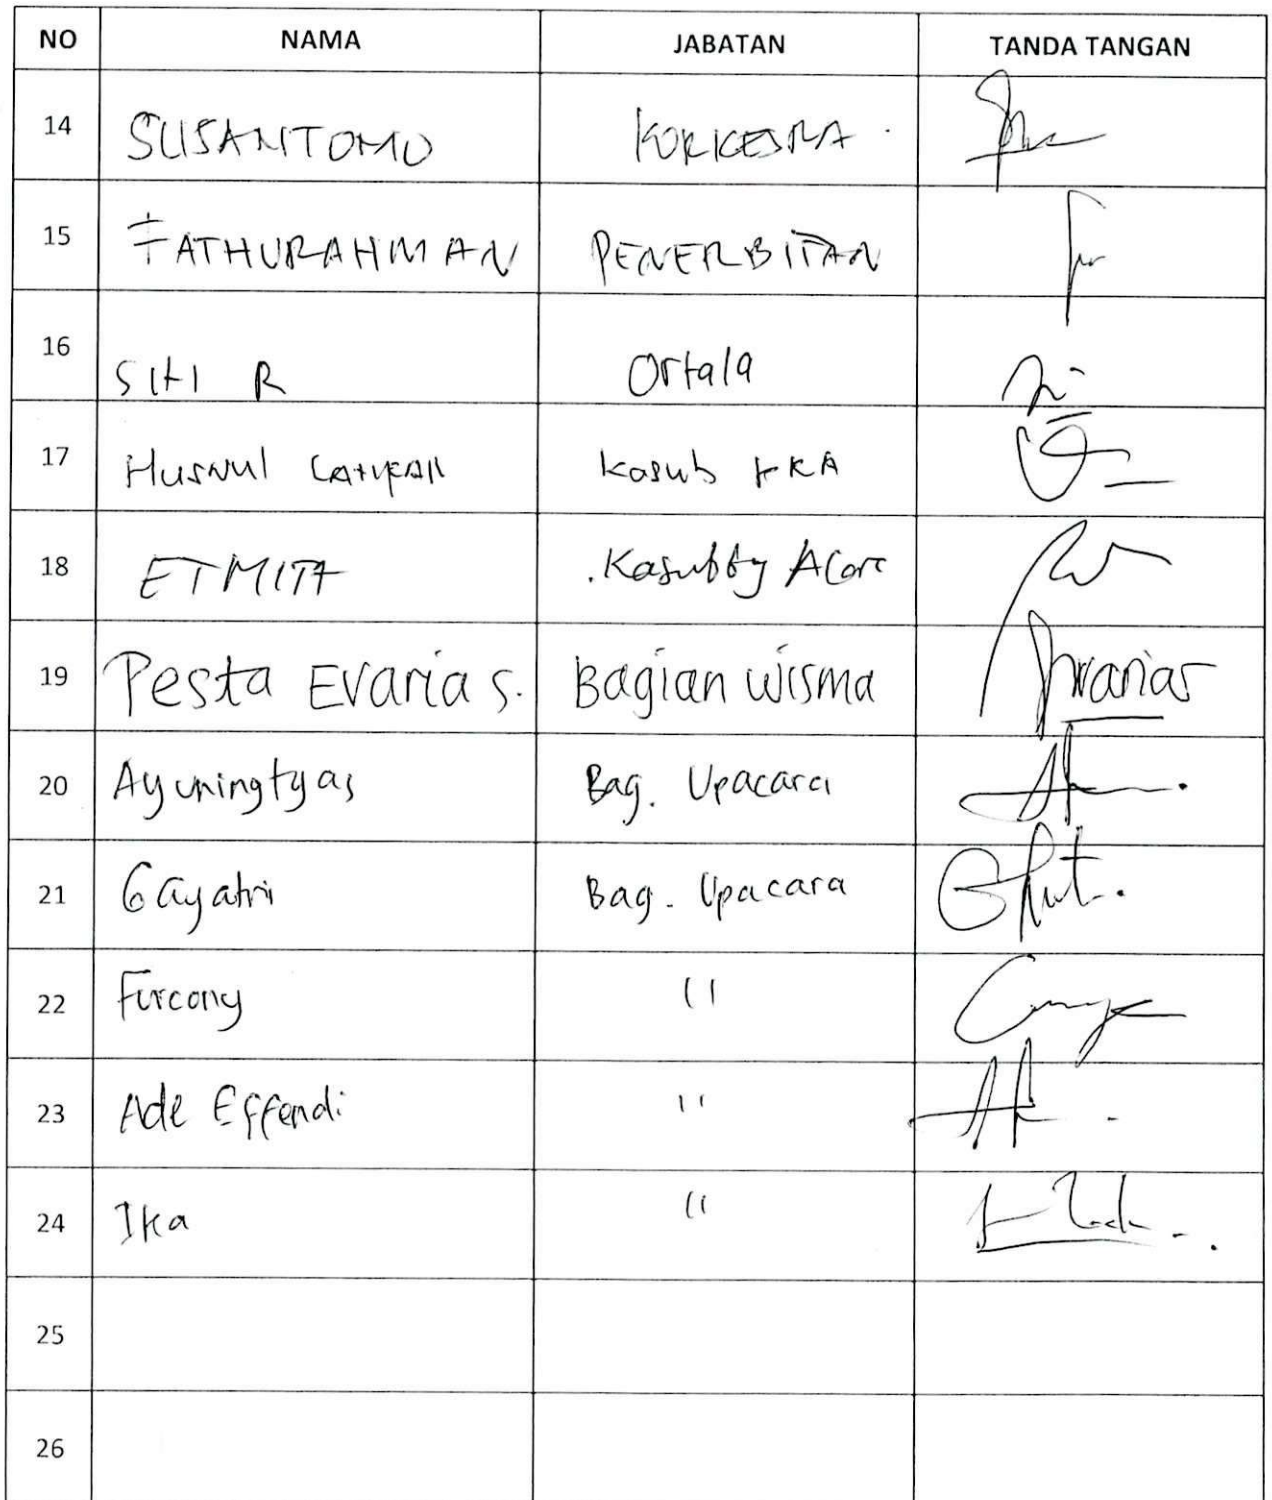 NO NAMA JABATAN TANDA TANGAN
14 SUSANTOMO KORKESRA
15 FATHURAHMAN PENERBITAN
16 Siti R Ortala
17 Husnul Kasub
18 ETMITA .Kasubbg Acara
19 Pesta Evaria S. Bagian Wisma
20 Ayuningtyas Bag. Upacara
21 Gayatri Bag. Upacara
22 Furcony "
23 Ade Effendi "
24 Ika "
25
26